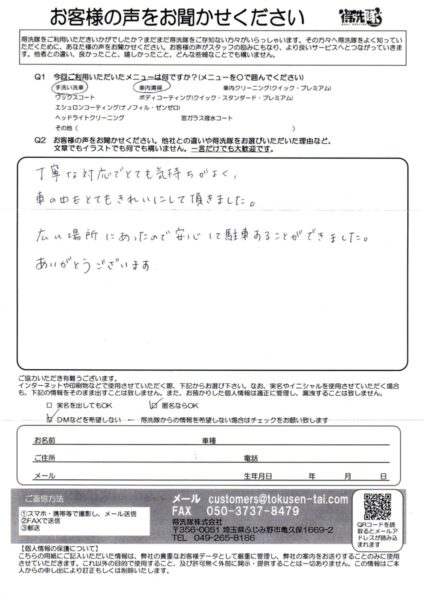 お客様の声をお聞かせください 得洗隊
得洗隊をご利用いただきいかがでしたか?まだまだ得洗隊をご存知ない方々がいらっしゃいます。その方々へ得洗隊をよく知っていただくために、あなた様の声をお聞かせください。お客様の声がスタッフの励みにもなり、より良いサービスへとつながっていきます。
他者との違い、良かったこと、嬉しかったこと、どんな些細なことでも構いません。
Q1 今回ご利用いただいたメニューは何ですか?(メニューを○で囲んでください)
手洗い洗車 車内清掃 車内クリーニング(クイック・スタンダード・プレミアム)
ワックスコート ボディコーティング(クイック・スタンダード・プレミアム)
エシュロンコーティング(ナノフィル・ゼンゼロ)
ヘッドライトクリーニング 窓ガラス撥水コート
その他( )
Q2 お客様の声をお聞かせください。他社との違いや得洗隊をお選びいただいた理由など、
文章でもイラストでも何でも構いません。一言だけでも大歓迎です。
丁寧な対応でとても気持ちがよく、
車の中をとてもきれいにして頂きました。
広い場所にあったので安心して駐車することができました。
ありがとうございます
ご協力いただき有難うございます。
インターネットや印刷物などで使用させていただく際、下記からお選び下さい。なお、実名やイニシャルを使用させていただく場合も、下記の情報をそのまま出すことは致しません。また、お預かりした個人情報は適正に管理し、漏洩することは致しません。
□ 実名を出してもOK ☑ 匿名ならOK
☑ DMなどを希望しない ← 得洗隊からの情報を希望しない場合はチェックをお願い致します
お名前 車種
ご住所 電話
メール 生年月日 年 月 日
ご返信方法
①スマホ・携帯等で撮影し、メール送信
②FAXで送信
③郵送
メール customers@tokusen-tai.com
FAX 050-3737-8479
得洗隊株式会社
〒356-0051 埼玉県ふじみ野市亀久保1669-2
TEL 049-265-8186
QRコードを読取るとメールアドレスが読み込まれます
【個人情報の保護について】
こちらの用紙にご記入いただいた情報は、弊社の貴重なお客様データとして厳重に管理し、弊社の案内をお送りすることのみに使用させていただきます。これ以外の目的で使用すること、及び許可無く外部に開示・提供することは一切ありません。この情報はご本人からの申し出により訂正もしくは削除いたします。